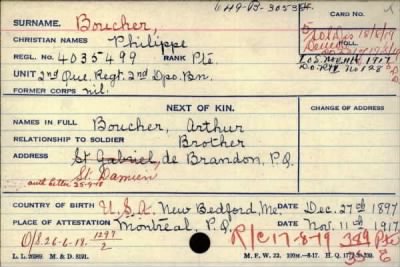 649-B-30534
SURNAME. Boucher,
CARD NO.
CHRISTIAN NAMES Philippe
REGL. NO. 4035499 RANK Pte.
UNIT 2nd Que. Regt. 2nd Dpo. Bn.
FORMER CORPS nil.
NEXT OF KIN.
CHANGE OF ADDRESS
NAMES IN FULL Boucher, Arthur
RELATIONSHIP TO SOLDIER Brother
ADDRESS St Gabriel, de Brandon, P.Q.
St. Damien
auth letter 25-9-18
COUNTRY OF BIRTH U.S.A. New Bedford, DATE Dec. 27th 1897
PLACE OF ATTESTATION Montreal, P.Q. DATE Nov. 11th 1917
O/S 26-6-18. 1297/2
R/C 17-8-19 389 Pte
L. L. 20989. M. & D. 8191.
M. F. W. 22.